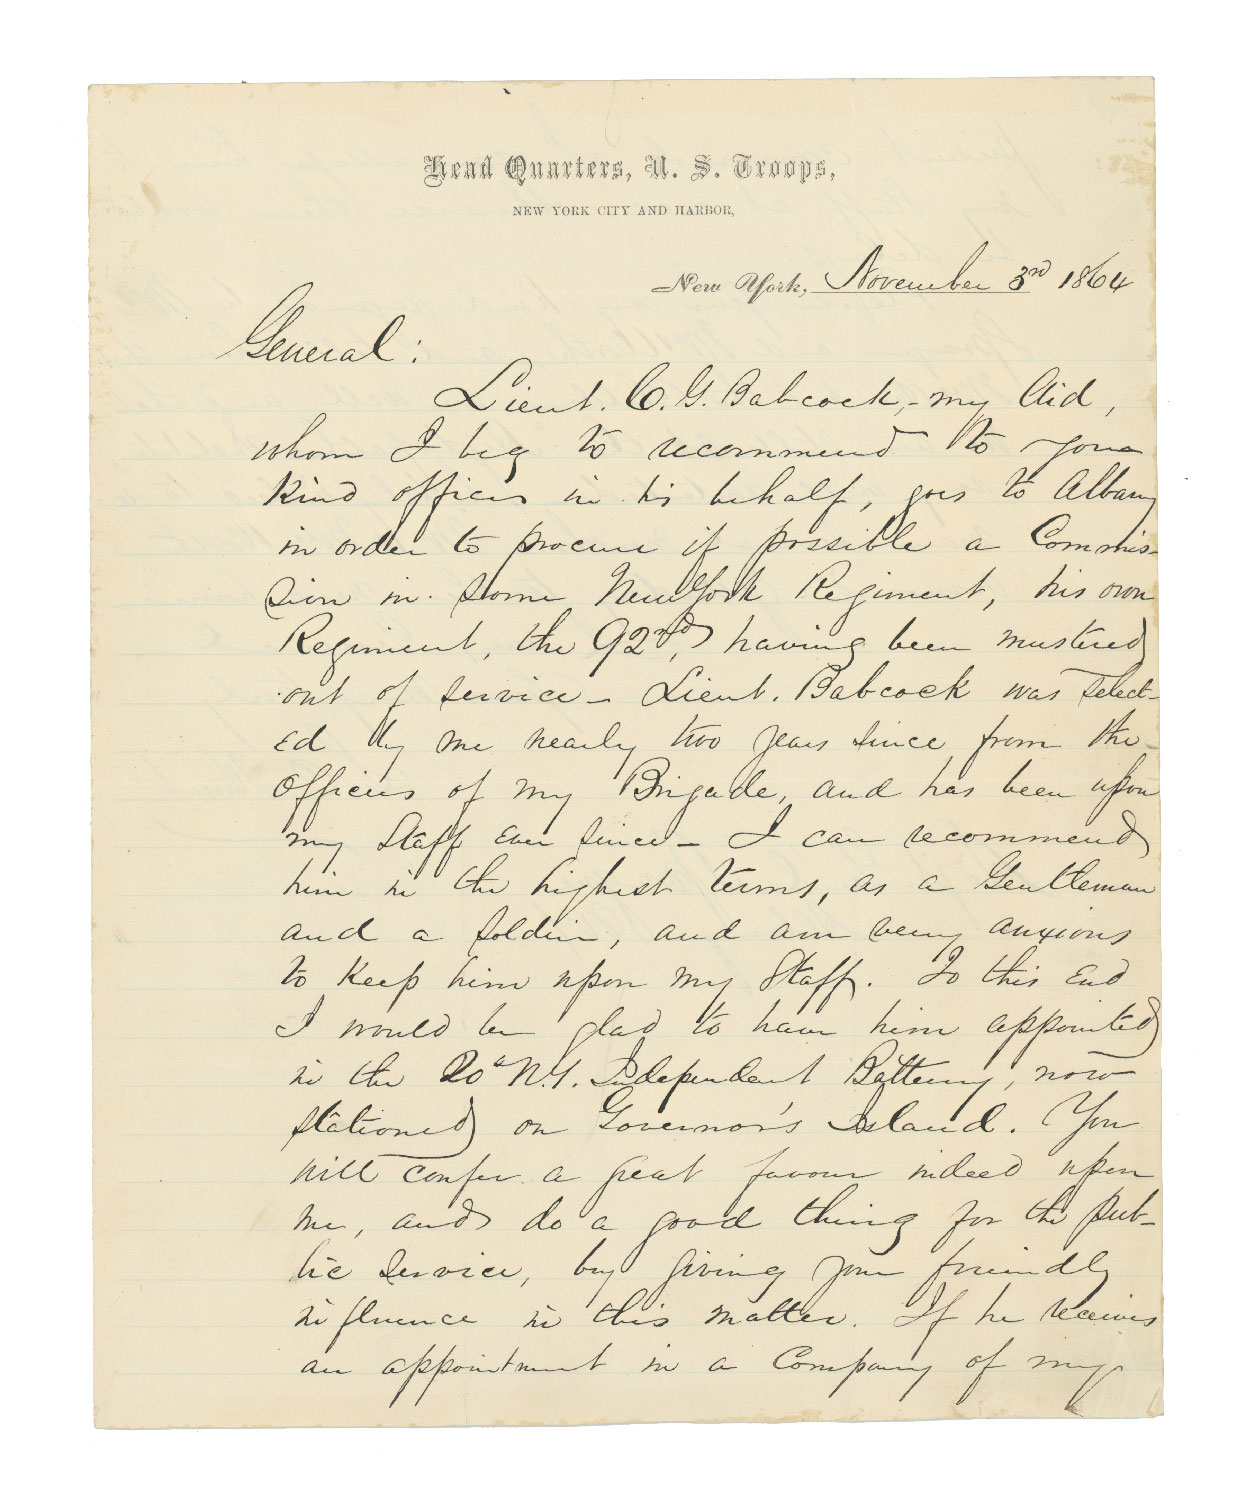 Head Quarters, U. S. Troops,
NEW YORK CITY AND HARBOR,
New York, November 3rd 1864
General:
Lieut. C. G. Babcock, - my Aid,
whom I beg to recommend to your
kind offices in his behalf, goes to Albany
in order to procure if possible a Commis-
sion in some New York Regiment, his own
Regiment, the 92nd, having been mustered
out of service - Lieut. Babcock was select-
ed by me nearly two years since from the
Officers of my Brigade, and has been upon
my Staff ever since - I can recommend
him in the highest terms, as a Gentleman
and a soldier, and am very anxious
to keep him upon my Staff. To this end
I would be glad to have him appointed
in the 20th N.Y. Independent Battery, now
stationed on Governor's Island. You
will confer a great favour indeed upon
me, and do a good thing for the pub-
lic service, by giving your friendly
influence in this matter. If he receives
an appointment in a Company of my